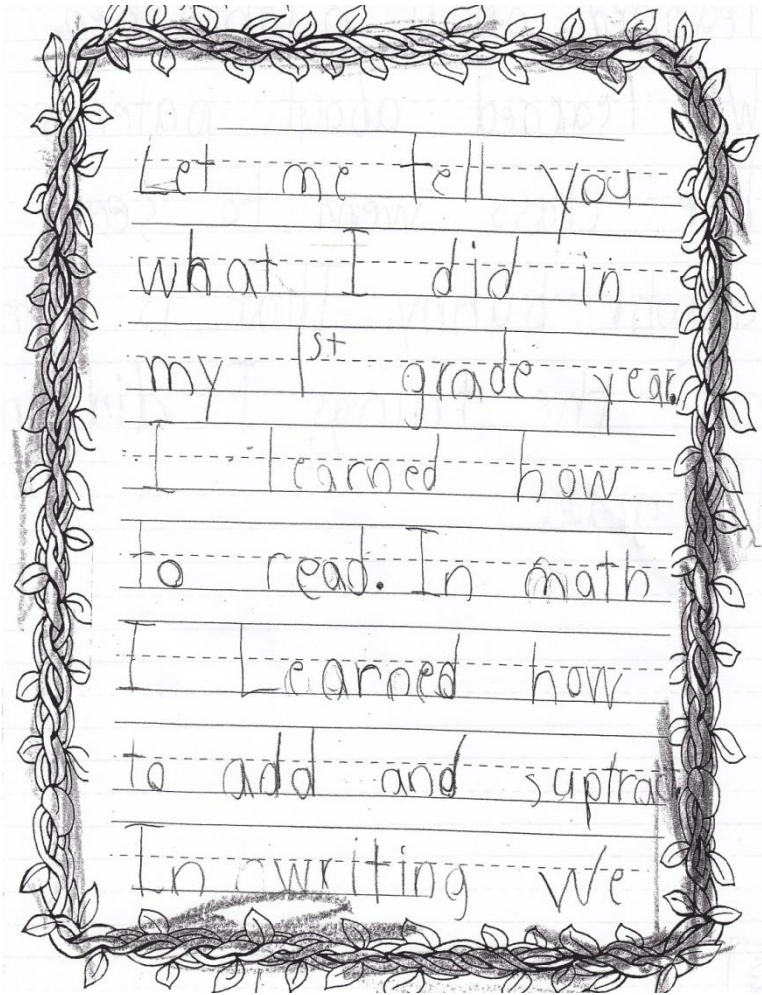 Let me tell you
what I did in
my 1st grade year.
I learned how
to read. In math
I Learned how
to add and suptrac
In writing We